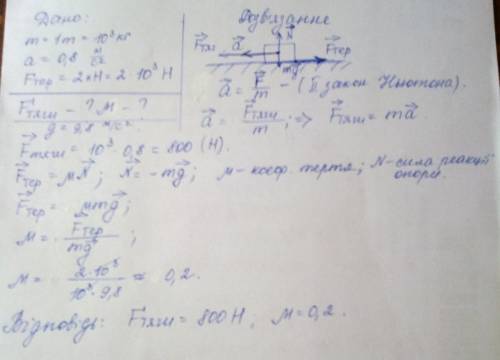 Дано:
m = 1т = 10³ кг
a = 0,8 м/с²
Fтер = 2кН = 2·10³ Н
F⃗тяги - ? М - ?
g = 9,8 м/с².
Розвязання
F⃗тяги a⃗ N⃗ F⃗тер
mg⃗
a⃗ = F⃗/m - (ІІ закон Ньютона).
a⃗ = F⃗тяги/m ; => F⃗тяги = ma⃗
F⃗тяги = 10³ · 0,8 = 800 (Н).
F⃗тер = μN⃗; N⃗ = -mg⃗; μ - коеф. тертя; N - сила реакції опори.
F⃗тер = μmg⃗;
М = F⃗тер/mg⃗ ;
М = 2·10³/10³·9,8 ≈ 0,2.
Відповідь: Fтяги = 800 Н; М = 0,2.